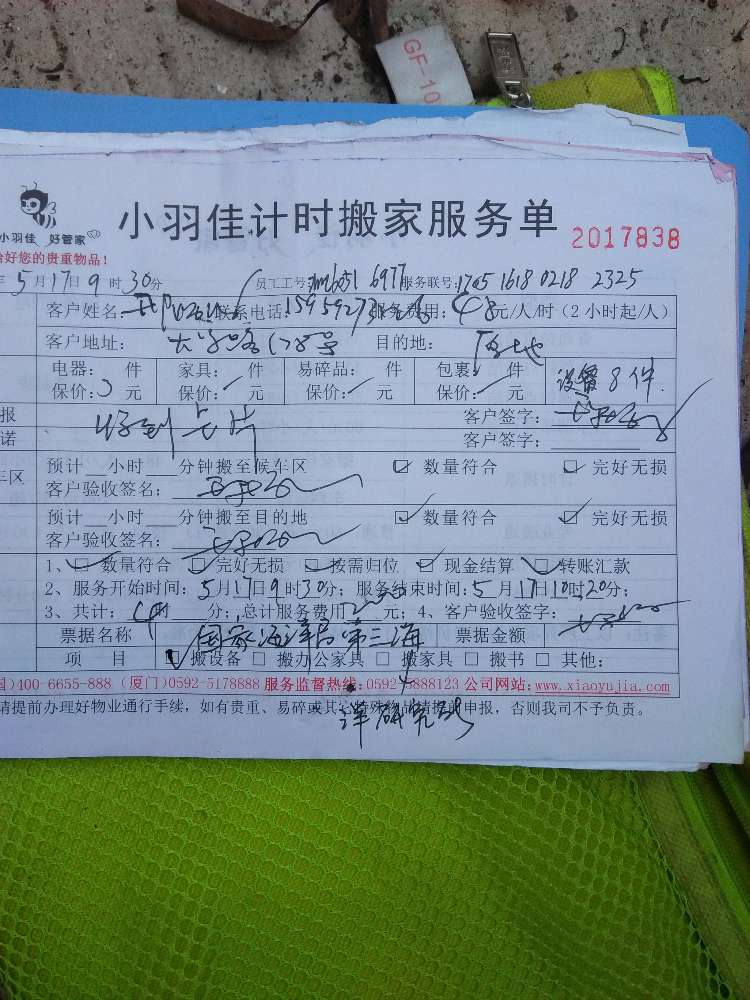 GF-10
小羽佳计时搬家服务单
小羽佳 好管家
2017838
好您的贵重物品！
5月17日9时30分 员工工号: 6977 服务联号: 1705 1618 0218 2325
客户姓名: 联系电话: 服务费用: 48元/人/时(2小时起/人)
客户地址: 大学路178号 目的地:
电器: 件 家具: 件 易碎品: 件 包裹: 件 设备8件
保价: 元 保价: 元 保价: 元 保价: 元
报 客户签字:
诺 客户签字:
车区 预计__小时__分钟搬至候车区 数量符合 完好无损
客户验收签名:
预计__小时__分钟搬至目的地 数量符合 完好无损
客户验收签名:
1、 数量符合 完好无损 按需归位 现金结算 转账汇款
2、服务开始时间: 5月17日9时30分; 服务结束时间: 5月17日10时20分;
3、共计: 时__分; 总计服务费用 元; 4、客户验收签字:
票据名称 国家海洋局第三海洋研究所 票据金额
项 目 搬设备 搬办公家具 搬家具 搬书 其他:
国)400-6655-888 (厦门)0592-5178888 服务监督热线:0592-5888123 公司网站:www.xiaoyujia.com
请提前办理好物业通行手续，如有贵重、易碎或其它特殊物品请提前申报，否则我司不予负责。